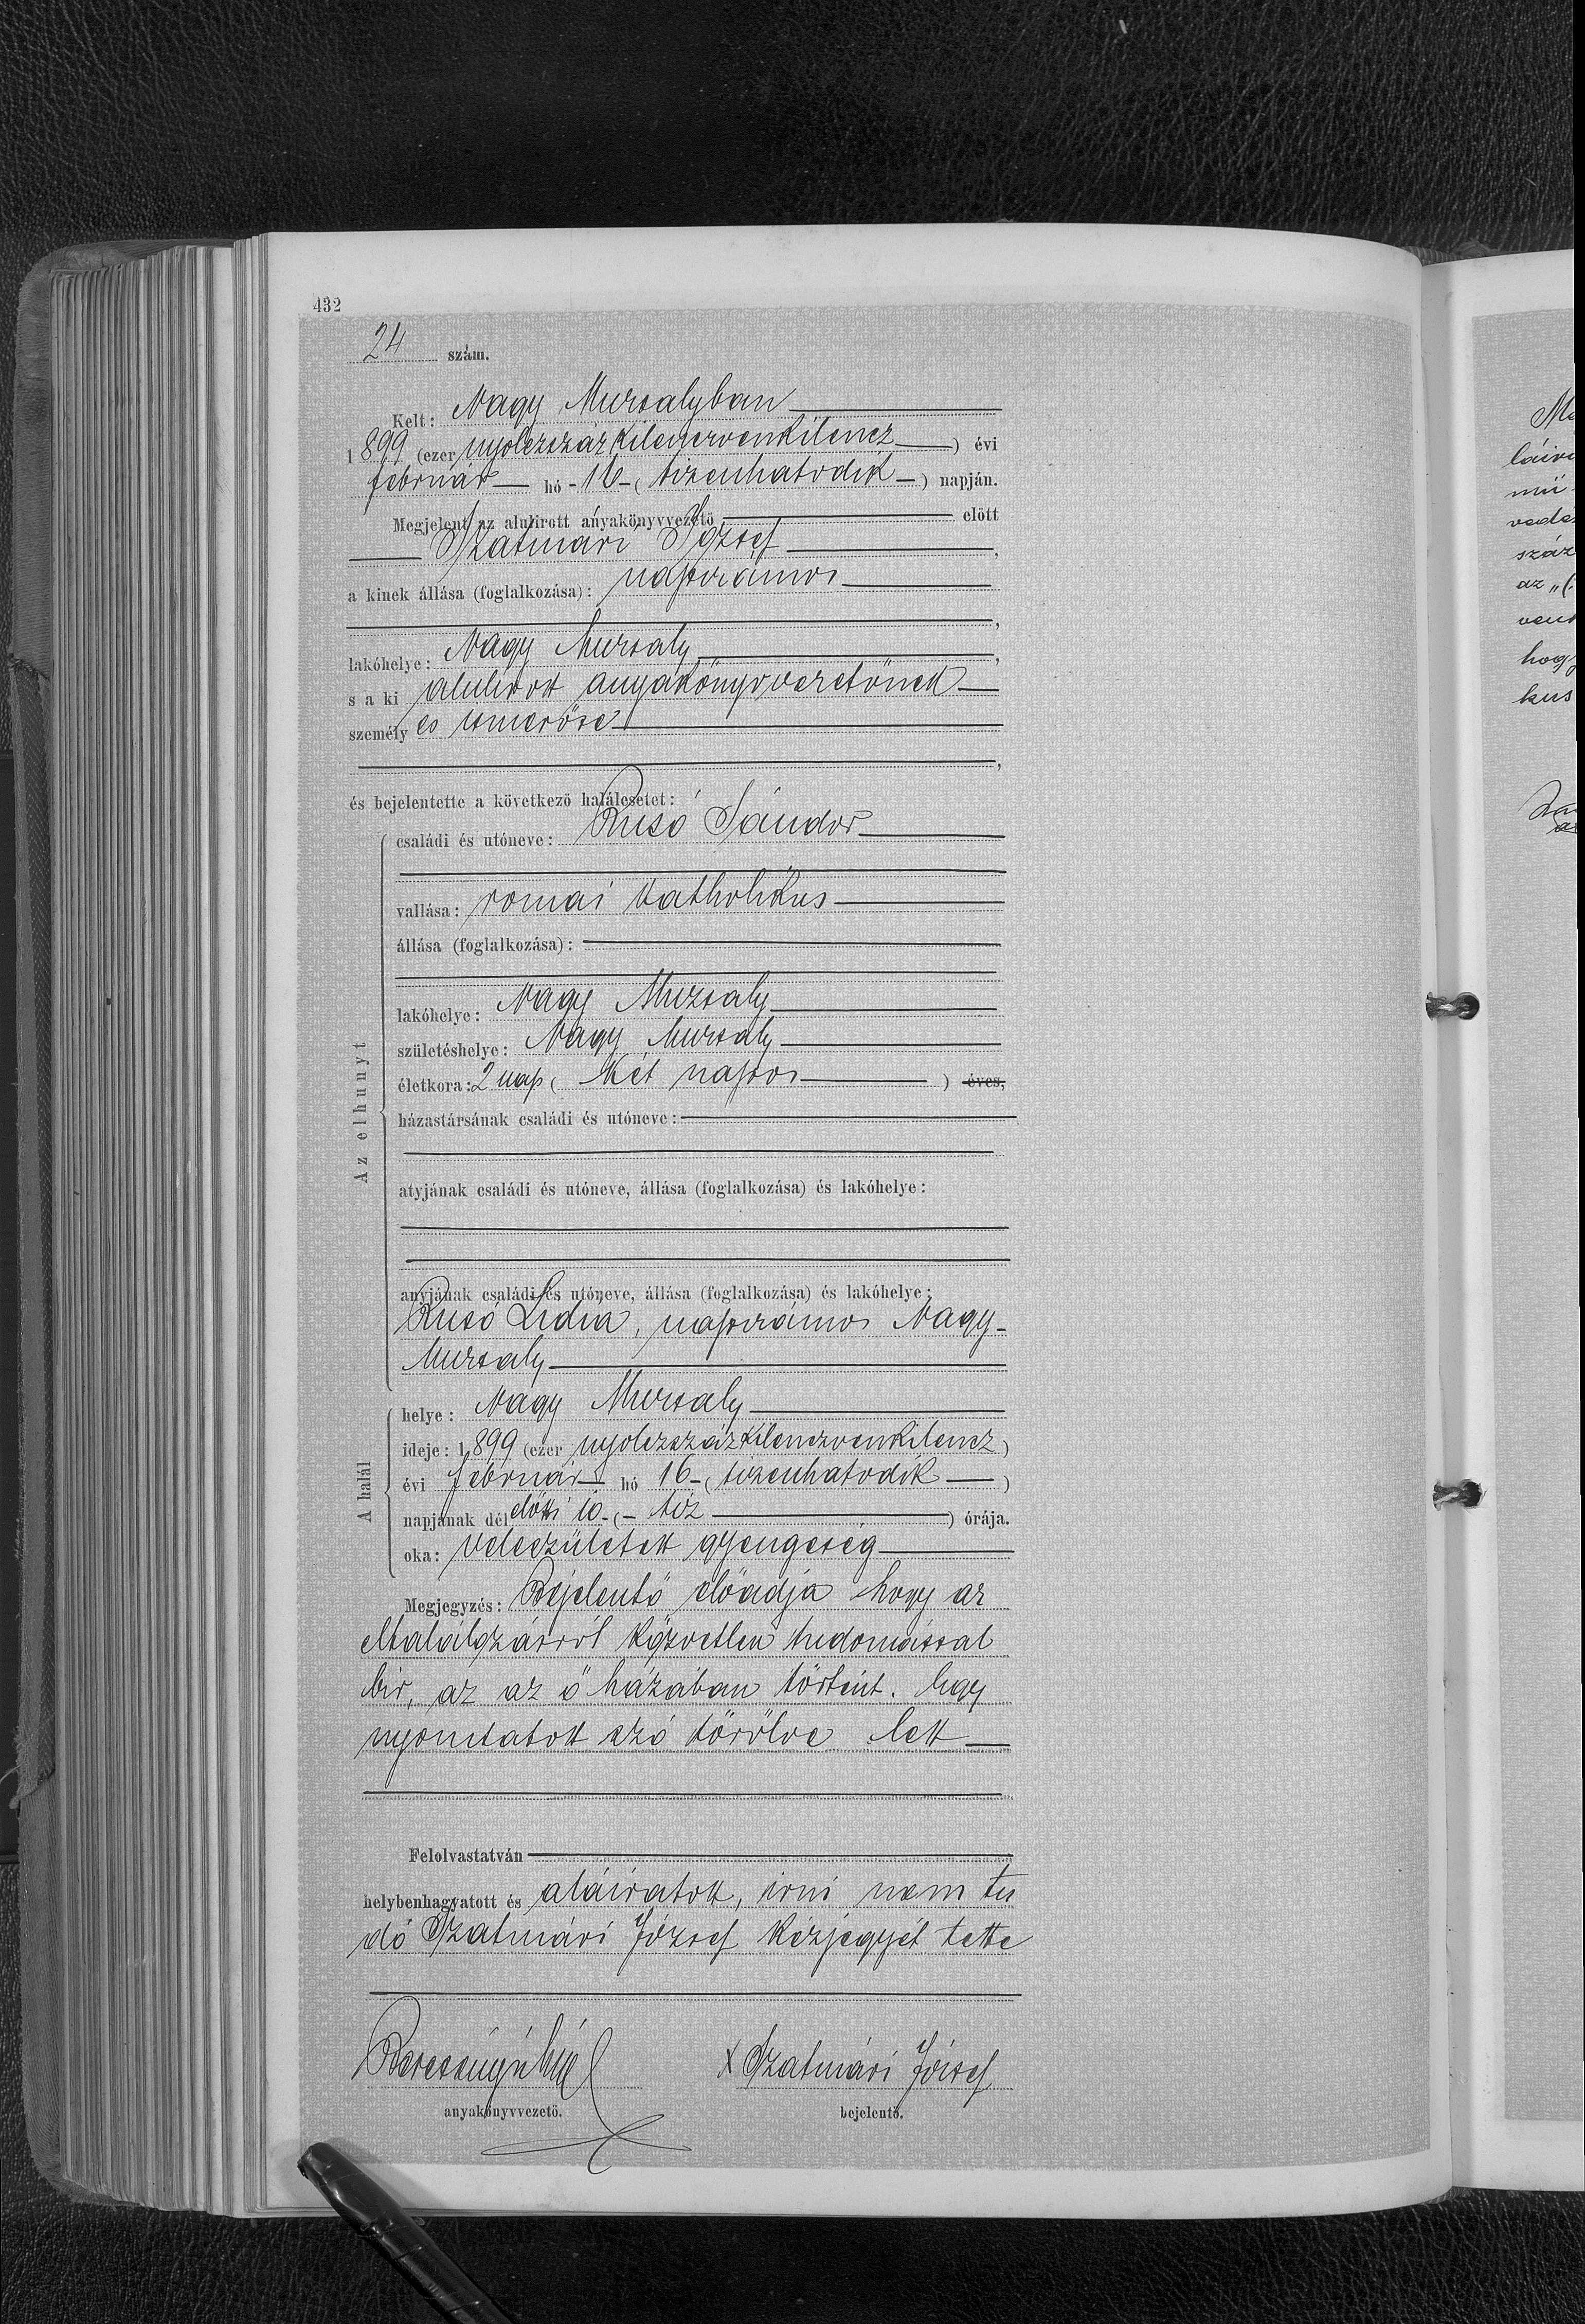 432
24 szám.
Kelt: Nagy Muzsalyban
1899 (ezer nyolczszázkilenczvenkilencz) évi
február hó 16 (tizenhatodik) napján.
Megjelent az alulirott anyakönyvvezető előtt
Szatmári József,
a kinek állása (foglalkozása): napszámos
lakóhelye: Nagy Muzsaly,
s a ki alulirott anyakönyvvezetőnek
személyes ismerőse
és bejelentette a következő halálesetet:
Az elhunyt
családi és utóneve: Rusó Sándor
vallása: romai katholikus
állása (foglalkozása):
lakóhelye: Nagy Muzsaly
születéshelye: Nagy Muzsaly
életkora: 2 nap (Két napos) éves,
házastársának családi és utóneve:
atyjának családi és utóneve, állása (foglalkozása) és lakóhelye:
anyjának családi és utóneve, állása (foglalkozása) és lakóhelye:
Rusó Lidia, napszámos Nagy-
Muzsaly
A halál
helye: Nagy Muzsaly
ideje: 1899 (ezer nyolczszázkilenczvenkilencz)
évi február hó 16 (tizenhatodik)
napjának délelőtti 10 (tiz) órája.
oka: veleszületett gyengeség
Megjegyzés: Bejelentő előadja hogy az
elhalálozásról közvetlen tudomással
bir, az az ő házában történt. Egy
nyomtatott szó törölve lett
Felolvastatván
helybenhagyatott és aláiratott, irni nem tu
dó Szatmári József kézjegyét tette
x Szatmári József
anyakönyvvezető. bejelentő.